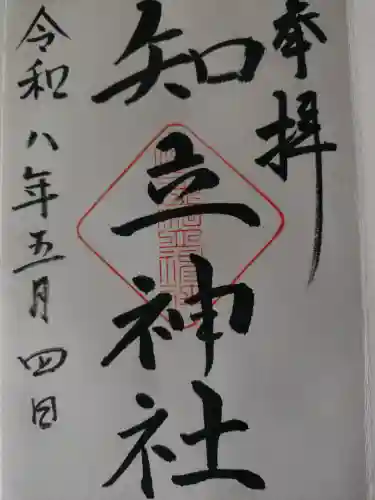 奉拝
知立神社
令和八年五月四日